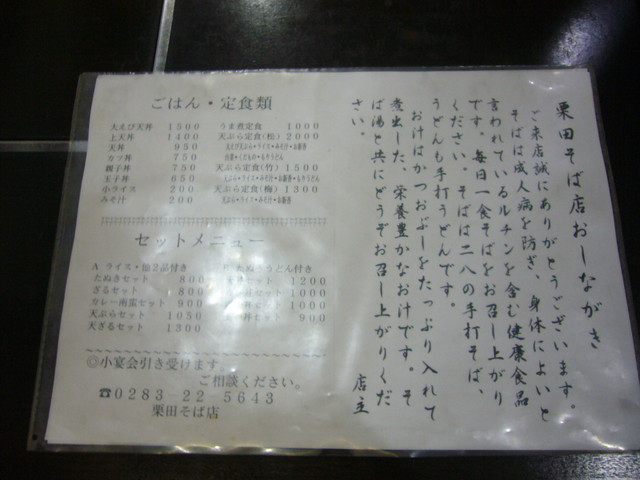 栗田そば店おしながき
ご来店誠にありがとうございます。
そばは成人病を防ぎ、身体によいと
言われているルチンを含む健康食品
です。毎日一食そばをお召し上がり
ください。そばは二八の手打そば、
うどんも手打うどんです。
お汁はかつおぶしをたっぷり入れて
煮出した、栄養豊かなお汁です。そ
ば湯と共にどうぞお召し上がりくだ
さい。
店主
ごはん・定食類
大えび天丼 1500
上天丼 1400
天丼 950
カツ丼 750
親子丼 750
玉子丼 650
小ライス 200
みそ汁 200
うま煮定食 1000
天ぷら定食(松) 2000
天ぷら定食(竹) 1500
天ぷら・ライス・みそ汁・お新香
天ぷら定食(梅) 1300
天ぷら・ライス・みそ汁・お新香
セットメニュー
A ライス・他2品付き
たぬきセット 800
ざるセット 800
カレー南蛮セット 900
天ぷらセット 1050
天ざるセット 1300
たぬきうどん付き
セット 1200
セット 1000
セット 1000
セット 900
◎小宴会引き受けます。
ご相談ください。
☎0283-22-5643
栗田そば店